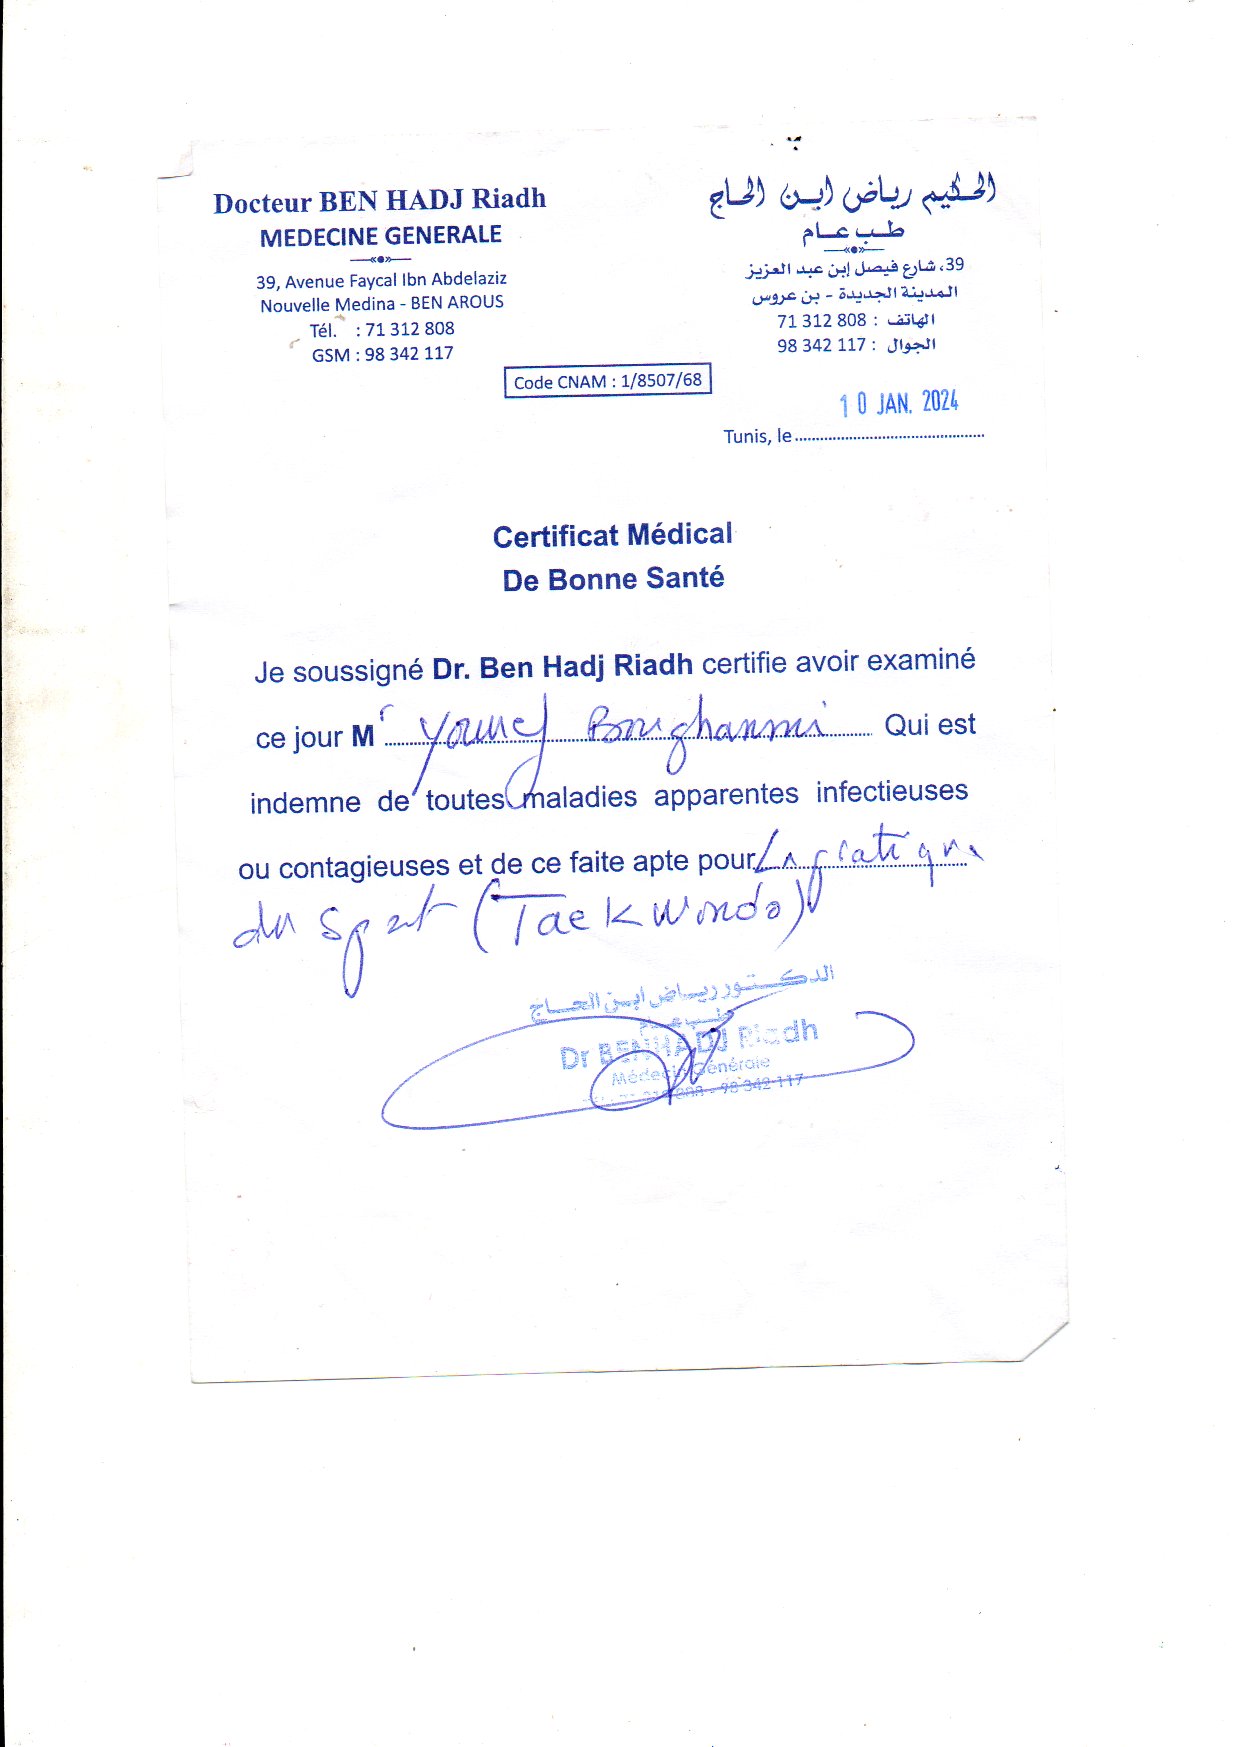 Docteur BEN HADJ Riadh
MEDECINE GENERALE
39, Avenue Faycal Ibn Abdelaziz
Nouvelle Medina - BEN AROUS
Tél. : 71 312 808
GSM : 98 342 117
الحكيم رياض ابن الحاج
طب عام
39، شارع فيصل إبن عبد العزيز
المدينة الجديدة - بن عروس
الهاتف : 71 312 808
الجوال : 98 342 117
Code CNAM : 1/8507/68
10 JAN. 2024
Tunis, le
Certificat Médical
De Bonne Santé
Je soussigné Dr. Ben Hadj Riadh certifie avoir examiné
ce jour Mr Youssef Boughanmi Qui est
indemne de toutes maladies apparentes infectieuses
ou contagieuses et de ce faite apte pour La pratique
du Sport (Taekwondo)
الدكتور رياض ابن الحاج
طب عام
Dr BEN HADJ Riadh
Médecin Générale
98 342 117